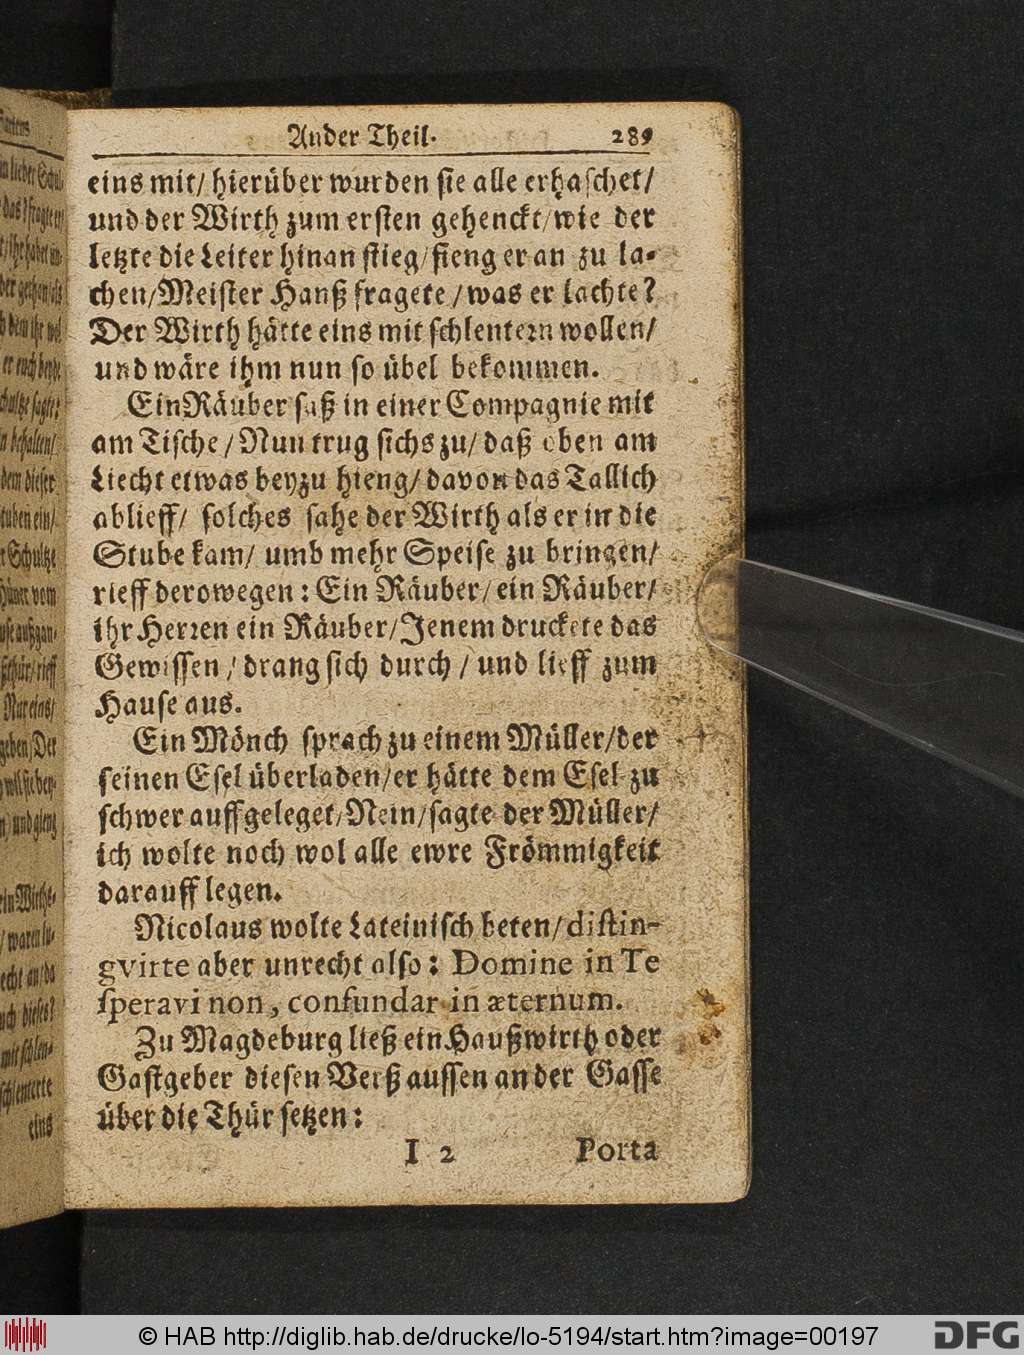 Ander Theil. 289
eins mit/ hierüber wurden sie alle erhaschet/
und der Wirth zum ersten gehenckt/ wie der
letzte die Leiter hinan stieg/ fieng er an zu la-
chen/ Meister Hanß fragete/ was er lachte?
Der Wirth hätte eins mit schlentern wollen/
und wäre ihm nun so übel bekommen.
Ein Räuber saß in einer Compagnie mit
am Tische/ Nun trug sichs zu/ daß oben am
Liecht etwas beyzu hieng/ davon das Tallich
ablieff/ solches sahe der Wirth als er in die
Stube kam/ umb mehr Speise zu bringen/
rieff derowegen: Ein Räuber/ ein Räuber/
ihr Herren ein Räuber/ Jenem druckete das
Gewissen/ drang sich durch/ und lieff zum
Hause aus.
Ein Mönch sprach zu einem Müller/ der
seinen Esel überladen/ er hätte dem Esel zu
schwer auffgeleget/ Nein/ sagte der Müller/
ich wolte noch wol alle ewre Frömmigkeit
darauff legen.
Nicolaus wolte Lateinisch beten/ distin-
gvirte aber unrecht also: Domine in Te
speravi non, confundar in æternum.
Zu Magdeburg ließ ein Haußwirth oder
Gastgeber diesen Verß aussen an der Gasse
über die Thür setzen:
I 2 Porta
© HAB http://diglib.hab.de/drucke/lo-5194/start.htm?image=00197
DFG